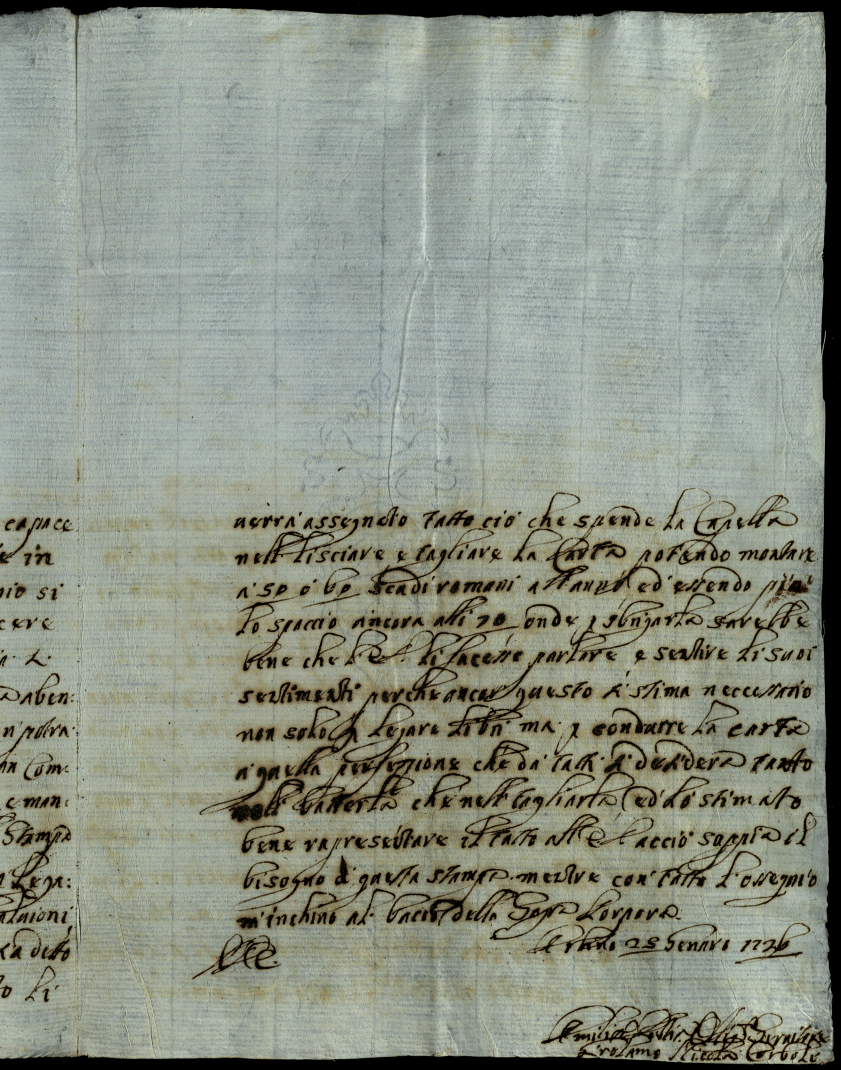 capace
e in
nio si
cere
aben:
n potra
an Com:
e man:
Stampa
n Lega:
za detto
to li
verra assegnato tutto ciò che spende la Capella
nell lisciare e tagliare la Carta potendo montare
a 50 ò 60 Scudi romani all'anno ed essendo
lo spaccio ancora alli 70 onde sarebbe
bene che l'E. li facesse parlare e sentire li suoi
sentimenti perche ancor questo si stima neccessario
non solo p legare libri ma p condurre la carta
a quella perfezzione che da tutti si desidera tanto
nell batterla che nell tagliarla ed hò stimato
bene rapresentare il tutto all acciò sappia il
bisogno di questa stampa mentre con tutto l'ossequio
m'inchino al bacio della Sagra Porpora
Urbino 28 Genaro 1726
Girolamo Nicola